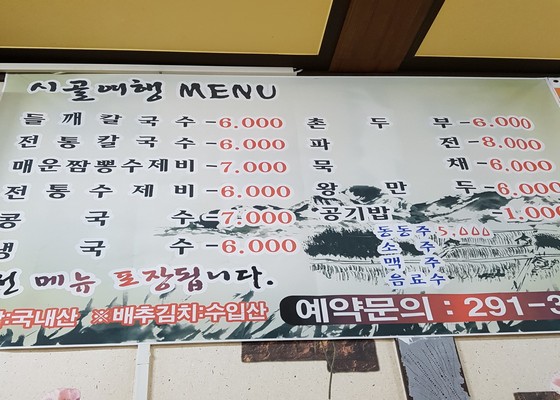 시골여행 MENU
들깨칼국수-6.000
전통칼국수-6.000
매운짬뽕수제비-7.000
전통수제비-6.000
콩국수-7.000
냉국수-6.000
촌두부-6.000
파전-8.000
묵채-6.000
왕만두-6.000
공기밥-1.000
동동주 5,000
소주
맥주
음료수
전 메뉴 포장됩니다.
:국내산 ※배추김치:수입산
예약문의 : 291-3